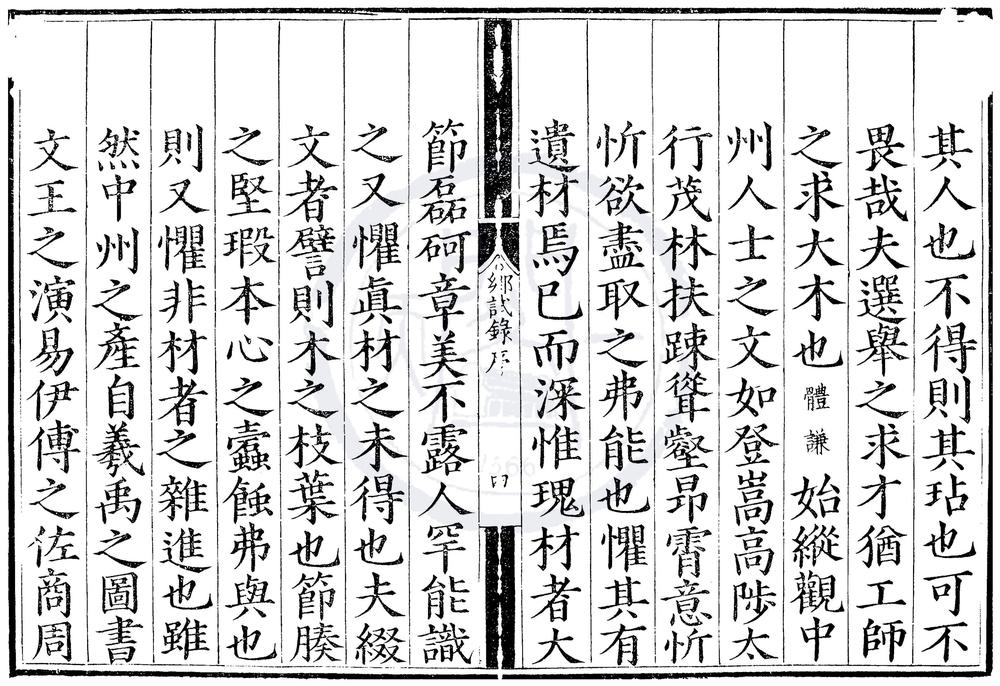 其人也不得則其玷也可不
畏哉夫選舉之求才猶工師
之求大木也體謙始縱觀中
州人士之文如登嵩高陟太
行茂林扶踈聳壑昂霄意忻
忻欲盡取之弗能也懼其有
遺材焉已而深惟瑰材者大
鄉試錄序
四
節磊砢章美不露人罕能識
之又懼眞材之未得也夫綴
文者譬則木之枝葉也節腠
之堅瑕本心之蠹蝕弗與也
則又懼非材者之雜進也雖
然中州之產自羲禹之圖書
文王之演易伊傅之佐商周